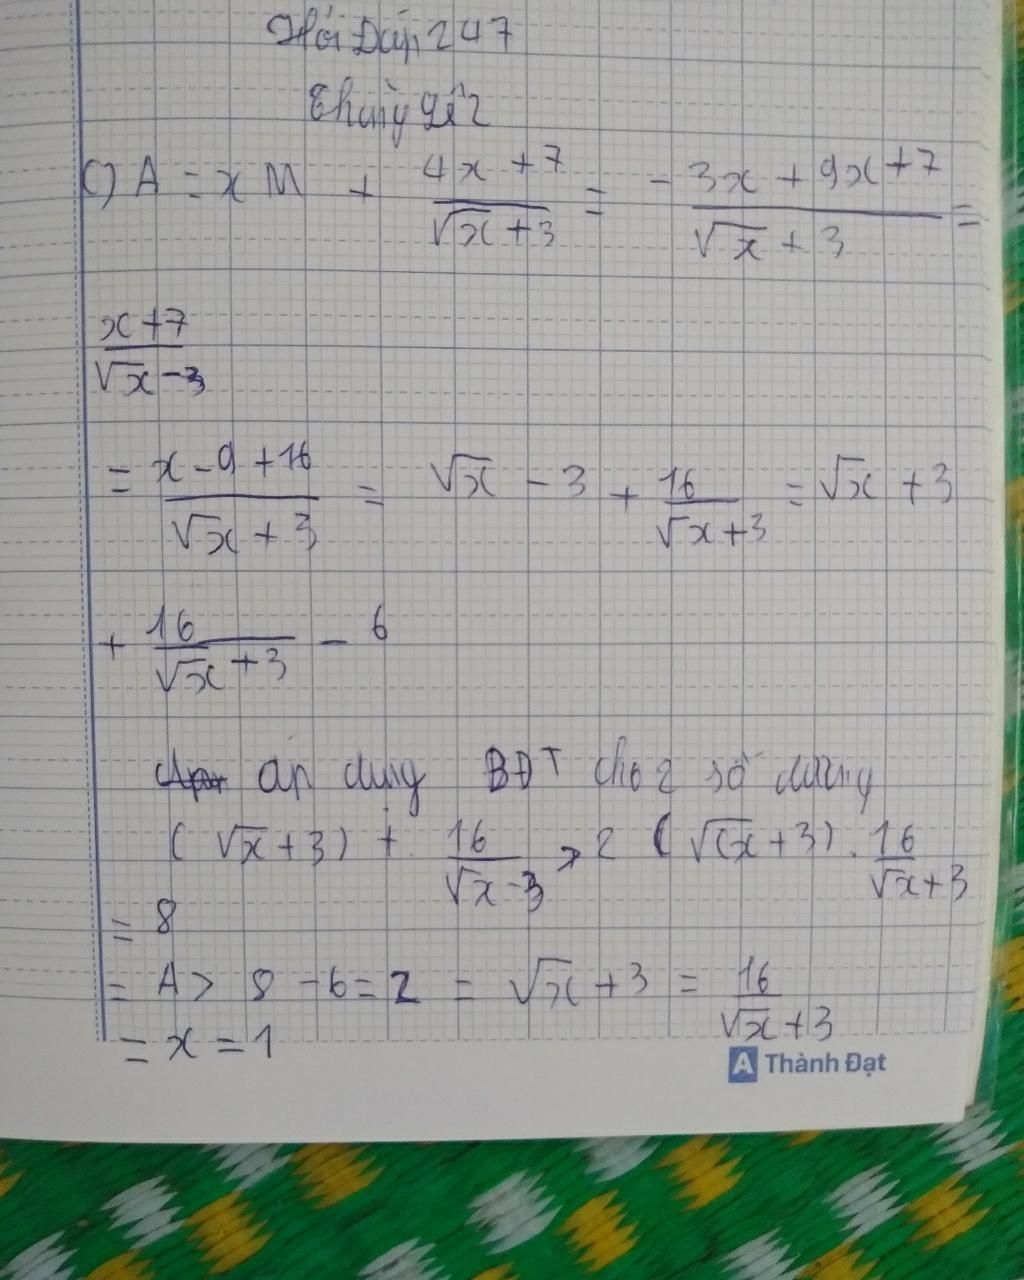 Hỏi Đáp 247
c) A = x M + \frac{4x + 7}{\sqrt{x} + 3} = - \frac{3x + 9x + 7}{\sqrt{x} + 3} =
\frac{x + 7}{\sqrt{x} - 3}
= \frac{x - 9 + 16}{\sqrt{x} + 3} = \sqrt{x} - 3 + \frac{16}{\sqrt{x} + 3} = \sqrt{x} + 3
+ \frac{16}{\sqrt{x} + 3} - 6
áp dụng BĐT cho 2 số dương
(\sqrt{x} + 3) + \frac{16}{\sqrt{x} - 3} > 2 (\sqrt{(x} + 3) . \frac{16}{\sqrt{x} + 3}
= 8
= A > 8 - 6 = 2 = \sqrt{x} + 3 = \frac{16}{\sqrt{x} + 3}
= x = 1
A Thành Đạt